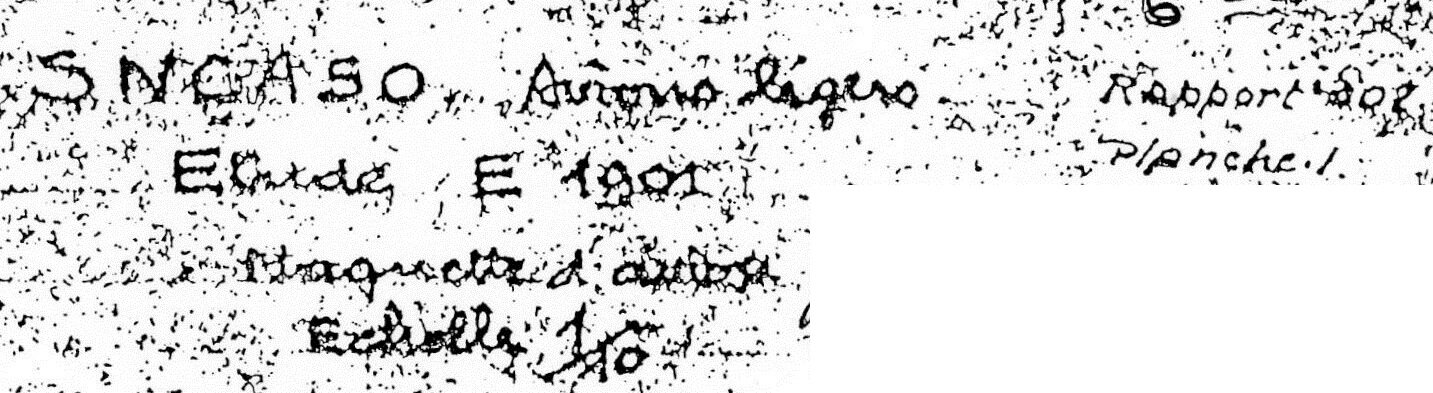 6
SNCASO Avions légers
Rapport 302
Planche.1.
Etude E 1901
Maquette d'avion
Echelle 1/10